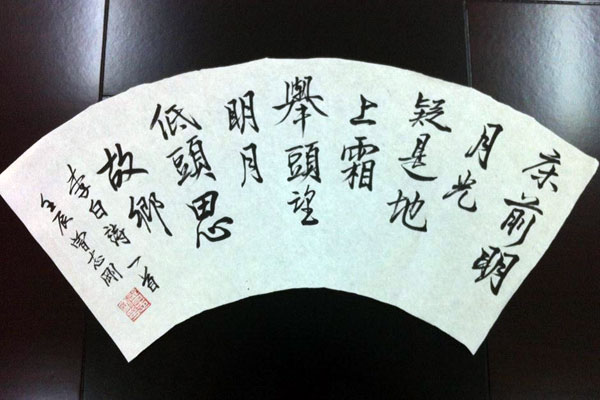 床前明
月光
疑是地
上霜
舉頭望
明月
低頭思
故鄉
李白詩一首
壬辰曾志剛